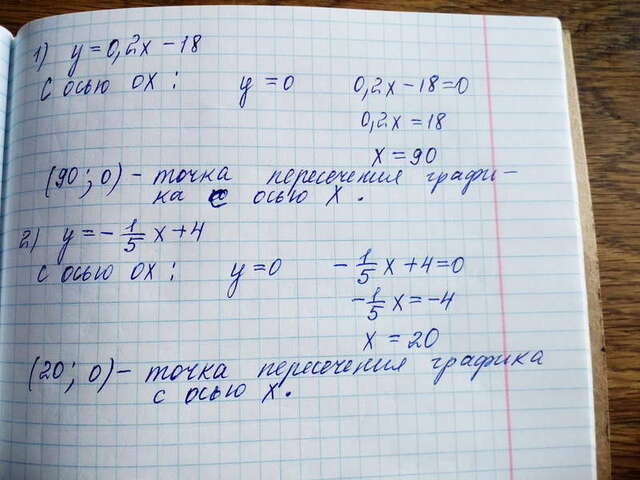 1) y = 0,2x − 18
С осью ОХ : y = 0 0,2x − 18 = 0
0,2x = 18
x = 90
(90 ; 0) − точка пересечения графи −
ка с осью X .
2) y = − 1/5 x + 4
С осью ОХ : y = 0 − 1/5 x + 4 = 0
− 1/5 x = −4
x = 20
(20 ; 0) − точка пересечения графика
с осью X .